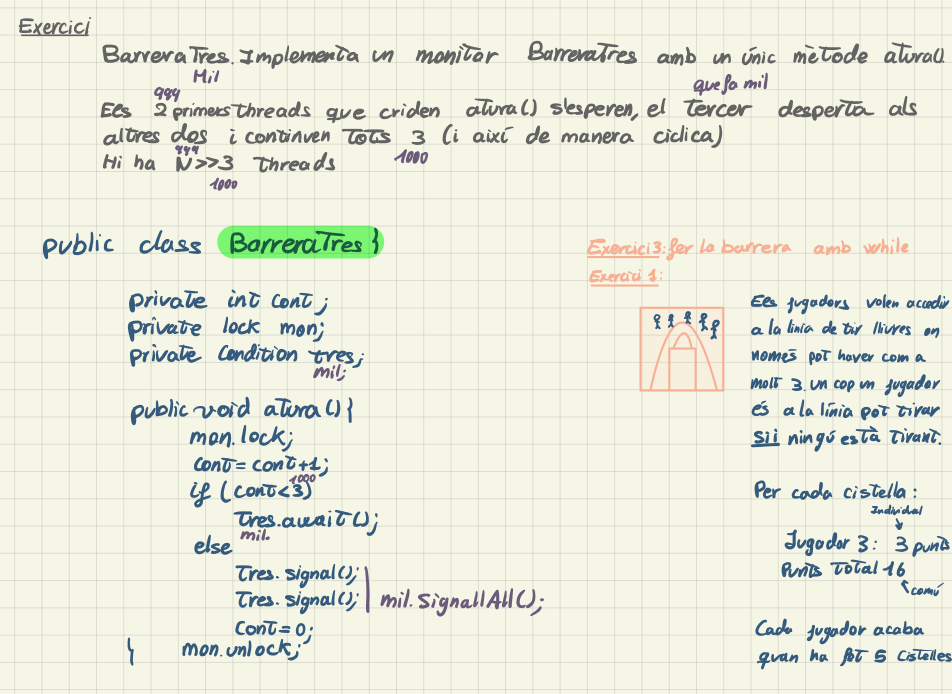 Exercici
BarreraTres. Implementa un monitor BarreraTres amb un únic mètode atura()
Mil
que fa mil
999
Els 2 primers threads que criden atura() s'esperen, el tercer desperta als
altres dos i continuen tots 3 (i així de manera cíclica)
999
1000
Hi ha N>>3 threads
1000
public class BarreraTres {
private int cont;
private lock mon;
private Condition tres;
mil;
public void atura() {
mon.lock;
cont = cont+1;
1000
if (cont<3)
Tres.await();
mil.
else
Tres.signal();
Tres.signal();
mil.SignallAll();
Cont=0;
} mon.unlock;
Exercici 3: fer la barrera amb while
Exercici 1:
Els jugadors volen accedir
a la línia de tir lliures on
només pot haver com a
molt 3. un cop un jugador
és a la línia pot tirar
sii ningú està tirant.
Per cada cistella:
Individal
Jugador 3: 3 punts
Punts Total 16
comú
Cada jugador acaba
quan ha fet 5 cistelles